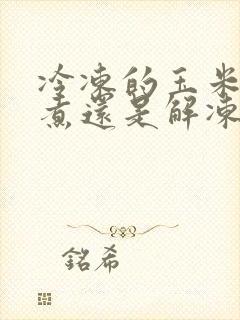 冷凍的玉米
煮還是解凍
銘希